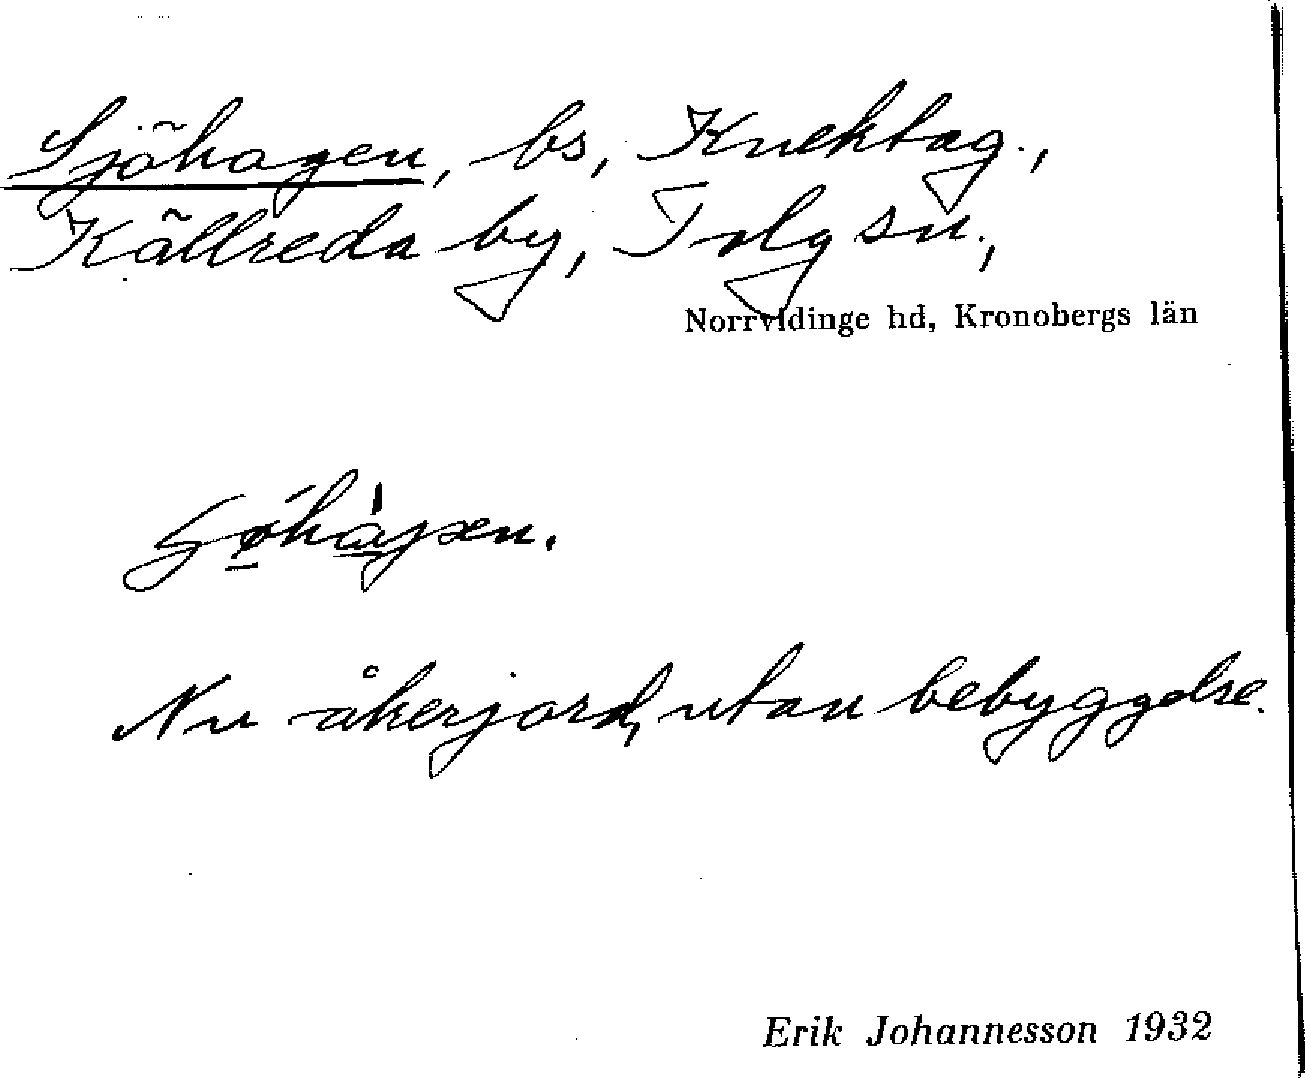 Sjöhagen, bs, Knektag.,
Källreda by, Tolg sn.,
Norrvidinge hd, Kronobergs län
Nu åkerjord, utan bebyggelse.
Erik Johannesson 1932